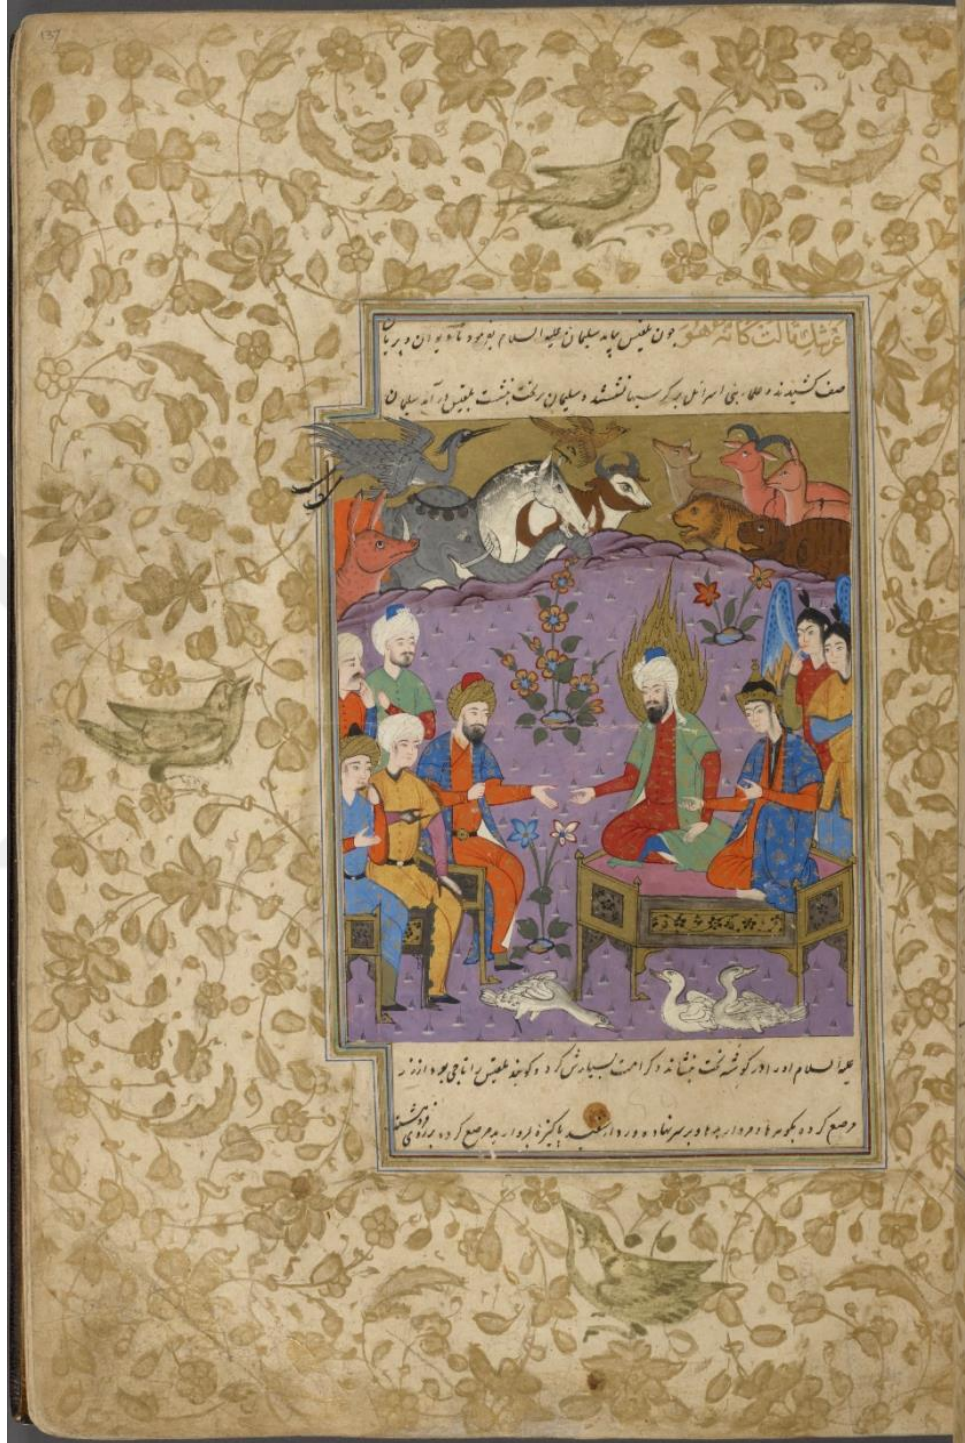 137
عَرْشُكِ قَالَتْ كَأَنَّهُ هُوَ چون بلقیس بیامد سلیمان علیه السلام بفرمود تا دیوان و پریان
صف کشیدند و علماء بنی اسرائیل بر کرسیها نشستند و سلیمان بر تخت بنشست بلقیس در آمد سلیمان
علیه السلام او را در گوشه تخت بنشاند و کرامت بسیارش کرد و گویند بلقیس را تاجی بود از زر
مرصع کرده بگوهرها و مرواریدها و بر سر نهاده و سفید پاکیزه بمروارید مرصع کرده بر روی